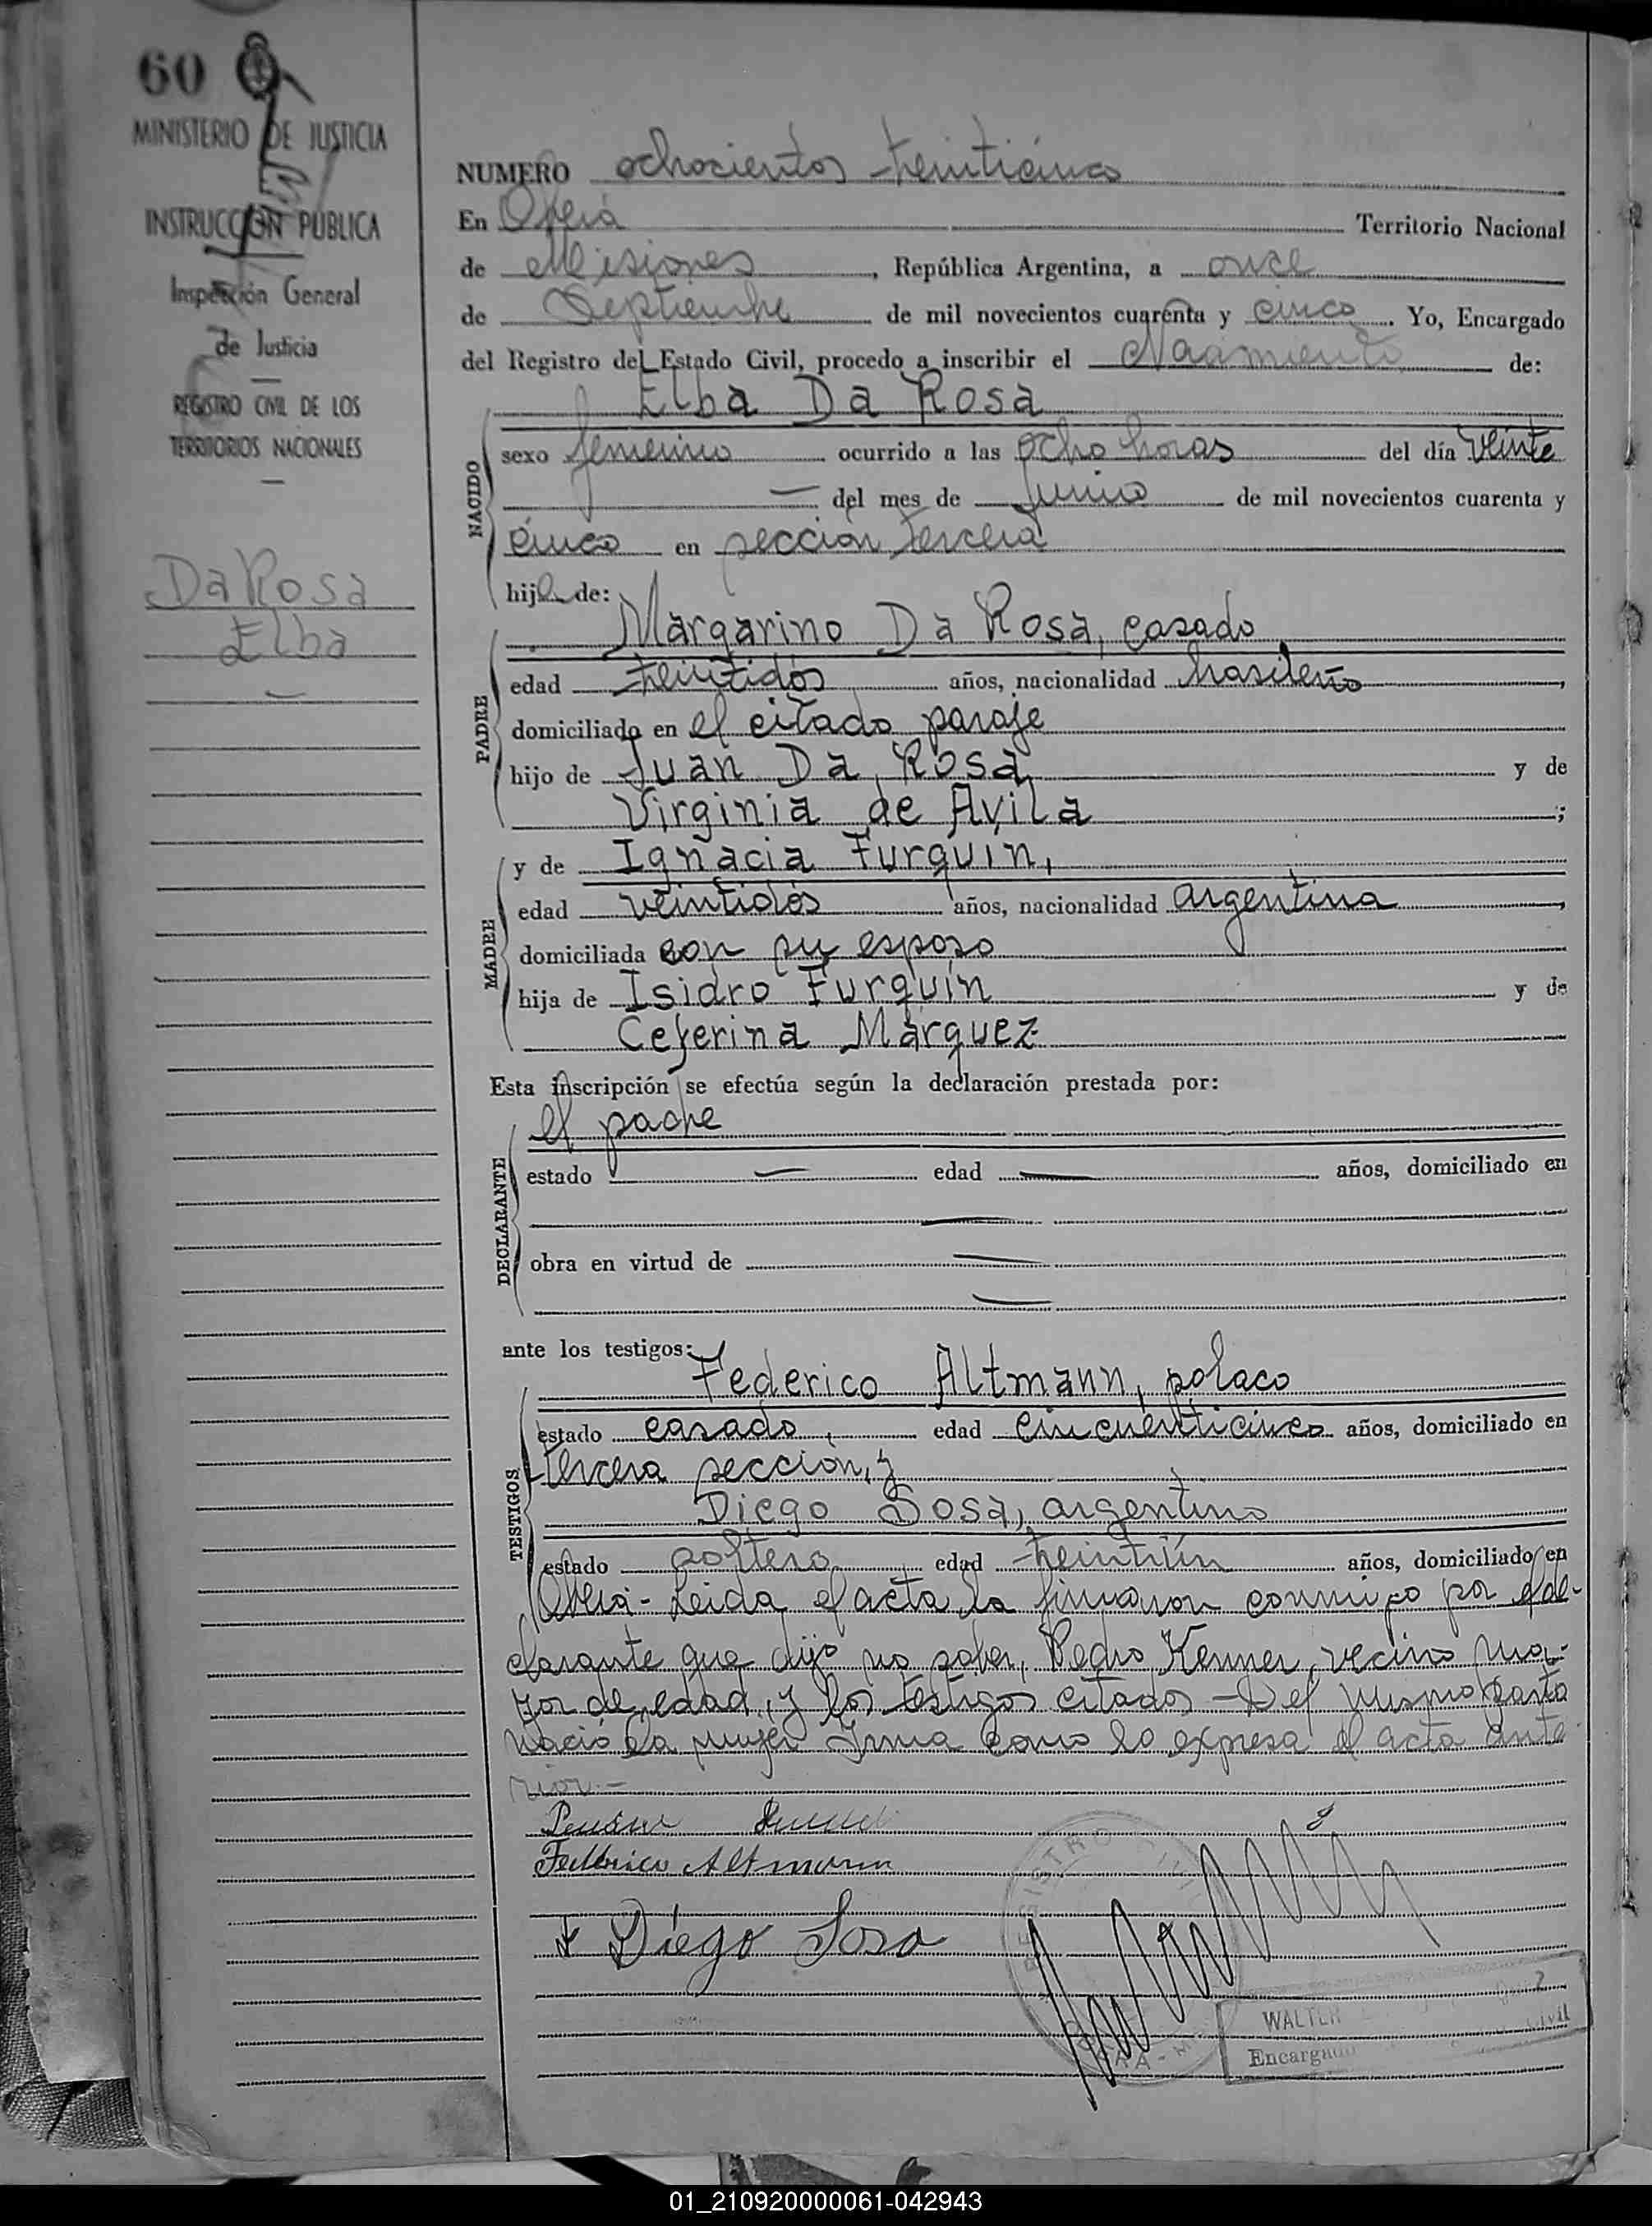 60
MINISTERIO DE JUSTICIA
INSTRUCCION PUBLICA
Inspección General
de Justicia
REGISTRO CIVIL DE LOS
TERRITORIOS NACIONALES
Da Rosa
Elba
NUMERO ochocientos treinticinco
En Oberá Territorio Nacional
de Misiones, República Argentina, a once
de Septiembre de mil novecientos cuarenta y cinco. Yo, Encargado
del Registro del Estado Civil, procedo a inscribir el Nacimiento de:
Elba Da Rosa
NACIDO
sexo femenino ocurrido a las ocho horas del día veinte
del mes de Junio de mil novecientos cuarenta y
cinco en sección tercera
hija de:
Margarino Da Rosa, casado
PADRE
edad treintidós años, nacionalidad brasileño,
domiciliado en el citado paraje
hijo de Juan Da Rosa y de
Virginia de Avila ;
y de Ignacia Furquin,
MADRE
edad veintidós años, nacionalidad argentina,
domiciliada con su esposo
hija de Isidro Furquin y de
Ceferina Márquez
Esta inscripción se efectúa según la declaración prestada por:
el padre
DECLARANTE
estado — edad — años, domiciliado en
obra en virtud de
ante los testigos:
Federico Altmann, polaco
TESTIGOS
estado casado, edad cincuenticinco años, domiciliado en
tercera sección, y
Diego Sosa, argentino
estado soltero edad treintiún años, domiciliado en
Oberá - Leida el acta la firmaron conmigo por el de-
clarante que dijo no saber, Pedro Kenner, vecino ma-
yor de edad, y los testigos citados - Del mismo parto
nació la mujer Irma como lo expresa el acta ante
rior.-
Federico Altmann
Diego Sosa
WALTER
Encargado Civil
01_210920000061-042943